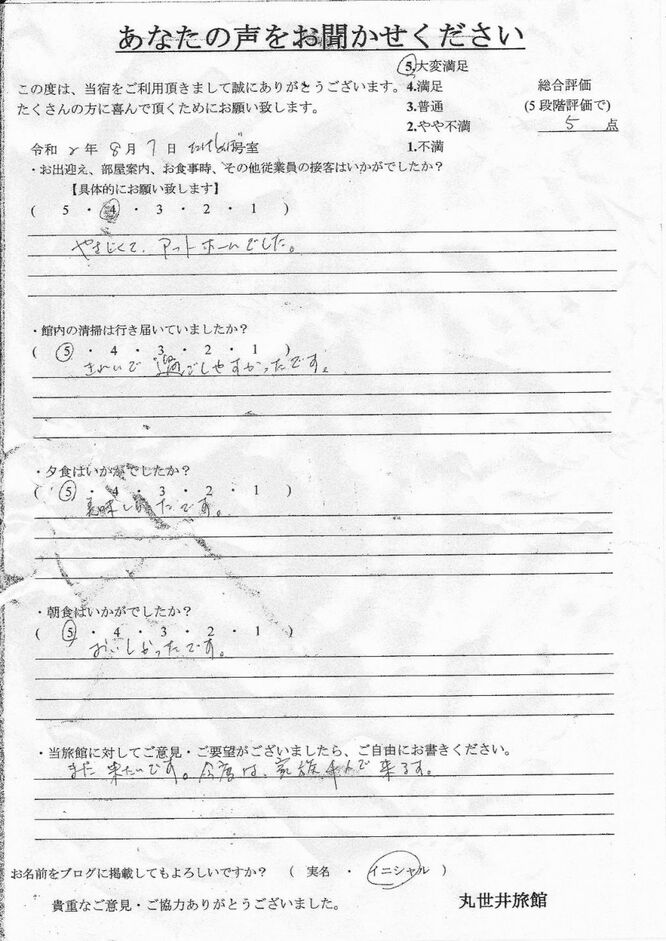 あなたの声をお聞かせください
⑤大変満足
この度は、当宿をご利用頂きまして誠にありがとうございます。 4.満足 総合評価
たくさんの方に喜んで頂くためにお願い致します。 3.普通 (5段階評価で)
2.やや不満 5 点
令和 2 年 8 月 7 日 号室 1.不満
・お出迎え、部屋案内、お食事時、その他従業員の接客はいかがでしたか?
【具体的にお願い致します】
( 5 ・ 4 ・ 3 ・ 2 ・ 1 )
やさしくて、アットホームでした。
・館内の清掃は行き届いていましたか?
( ⑤ ・ 4 ・ 3 ・ 2 ・ 1 )
きれいで 過ごしやすかったです。
・夕食はいかがでしたか?
( ⑤ ・ 4 ・ 3 ・ 2 ・ 1 )
美味しかったです。
・朝食はいかがでしたか?
( ⑤ ・ 4 ・ 3 ・ 2 ・ 1 )
おいしかったです。
・当旅館に対してご意見・ご要望がございましたら、ご自由にお書きください。
また 来たいです。今度は、家族4人で来ます。
お名前をブログに掲載してもよろしいですか? ( 実名 ・ イニシャル )
貴重なご意見・ご協力ありがとうございました。 丸世井旅館